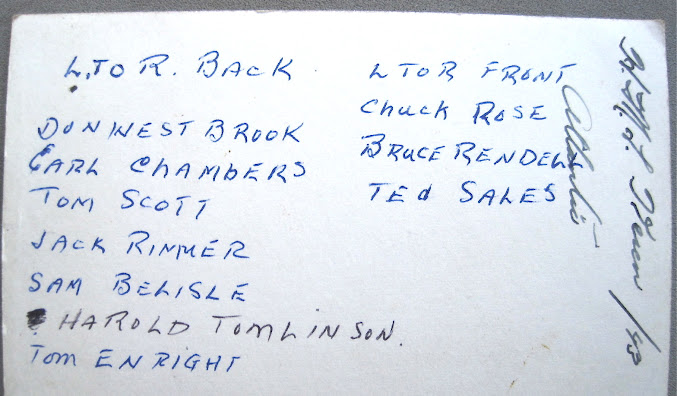 L. TO R. BACK
DON WEST BROOK
EARL CHAMBERS
TOM SCOTT
JACK RIMMER
SAM BELISLE
HAROLD TOMLINSON.
Tom ENRIGHT
L TO R FRONT
Chuck ROSE
BRUCE RENDELL
TEd SALES